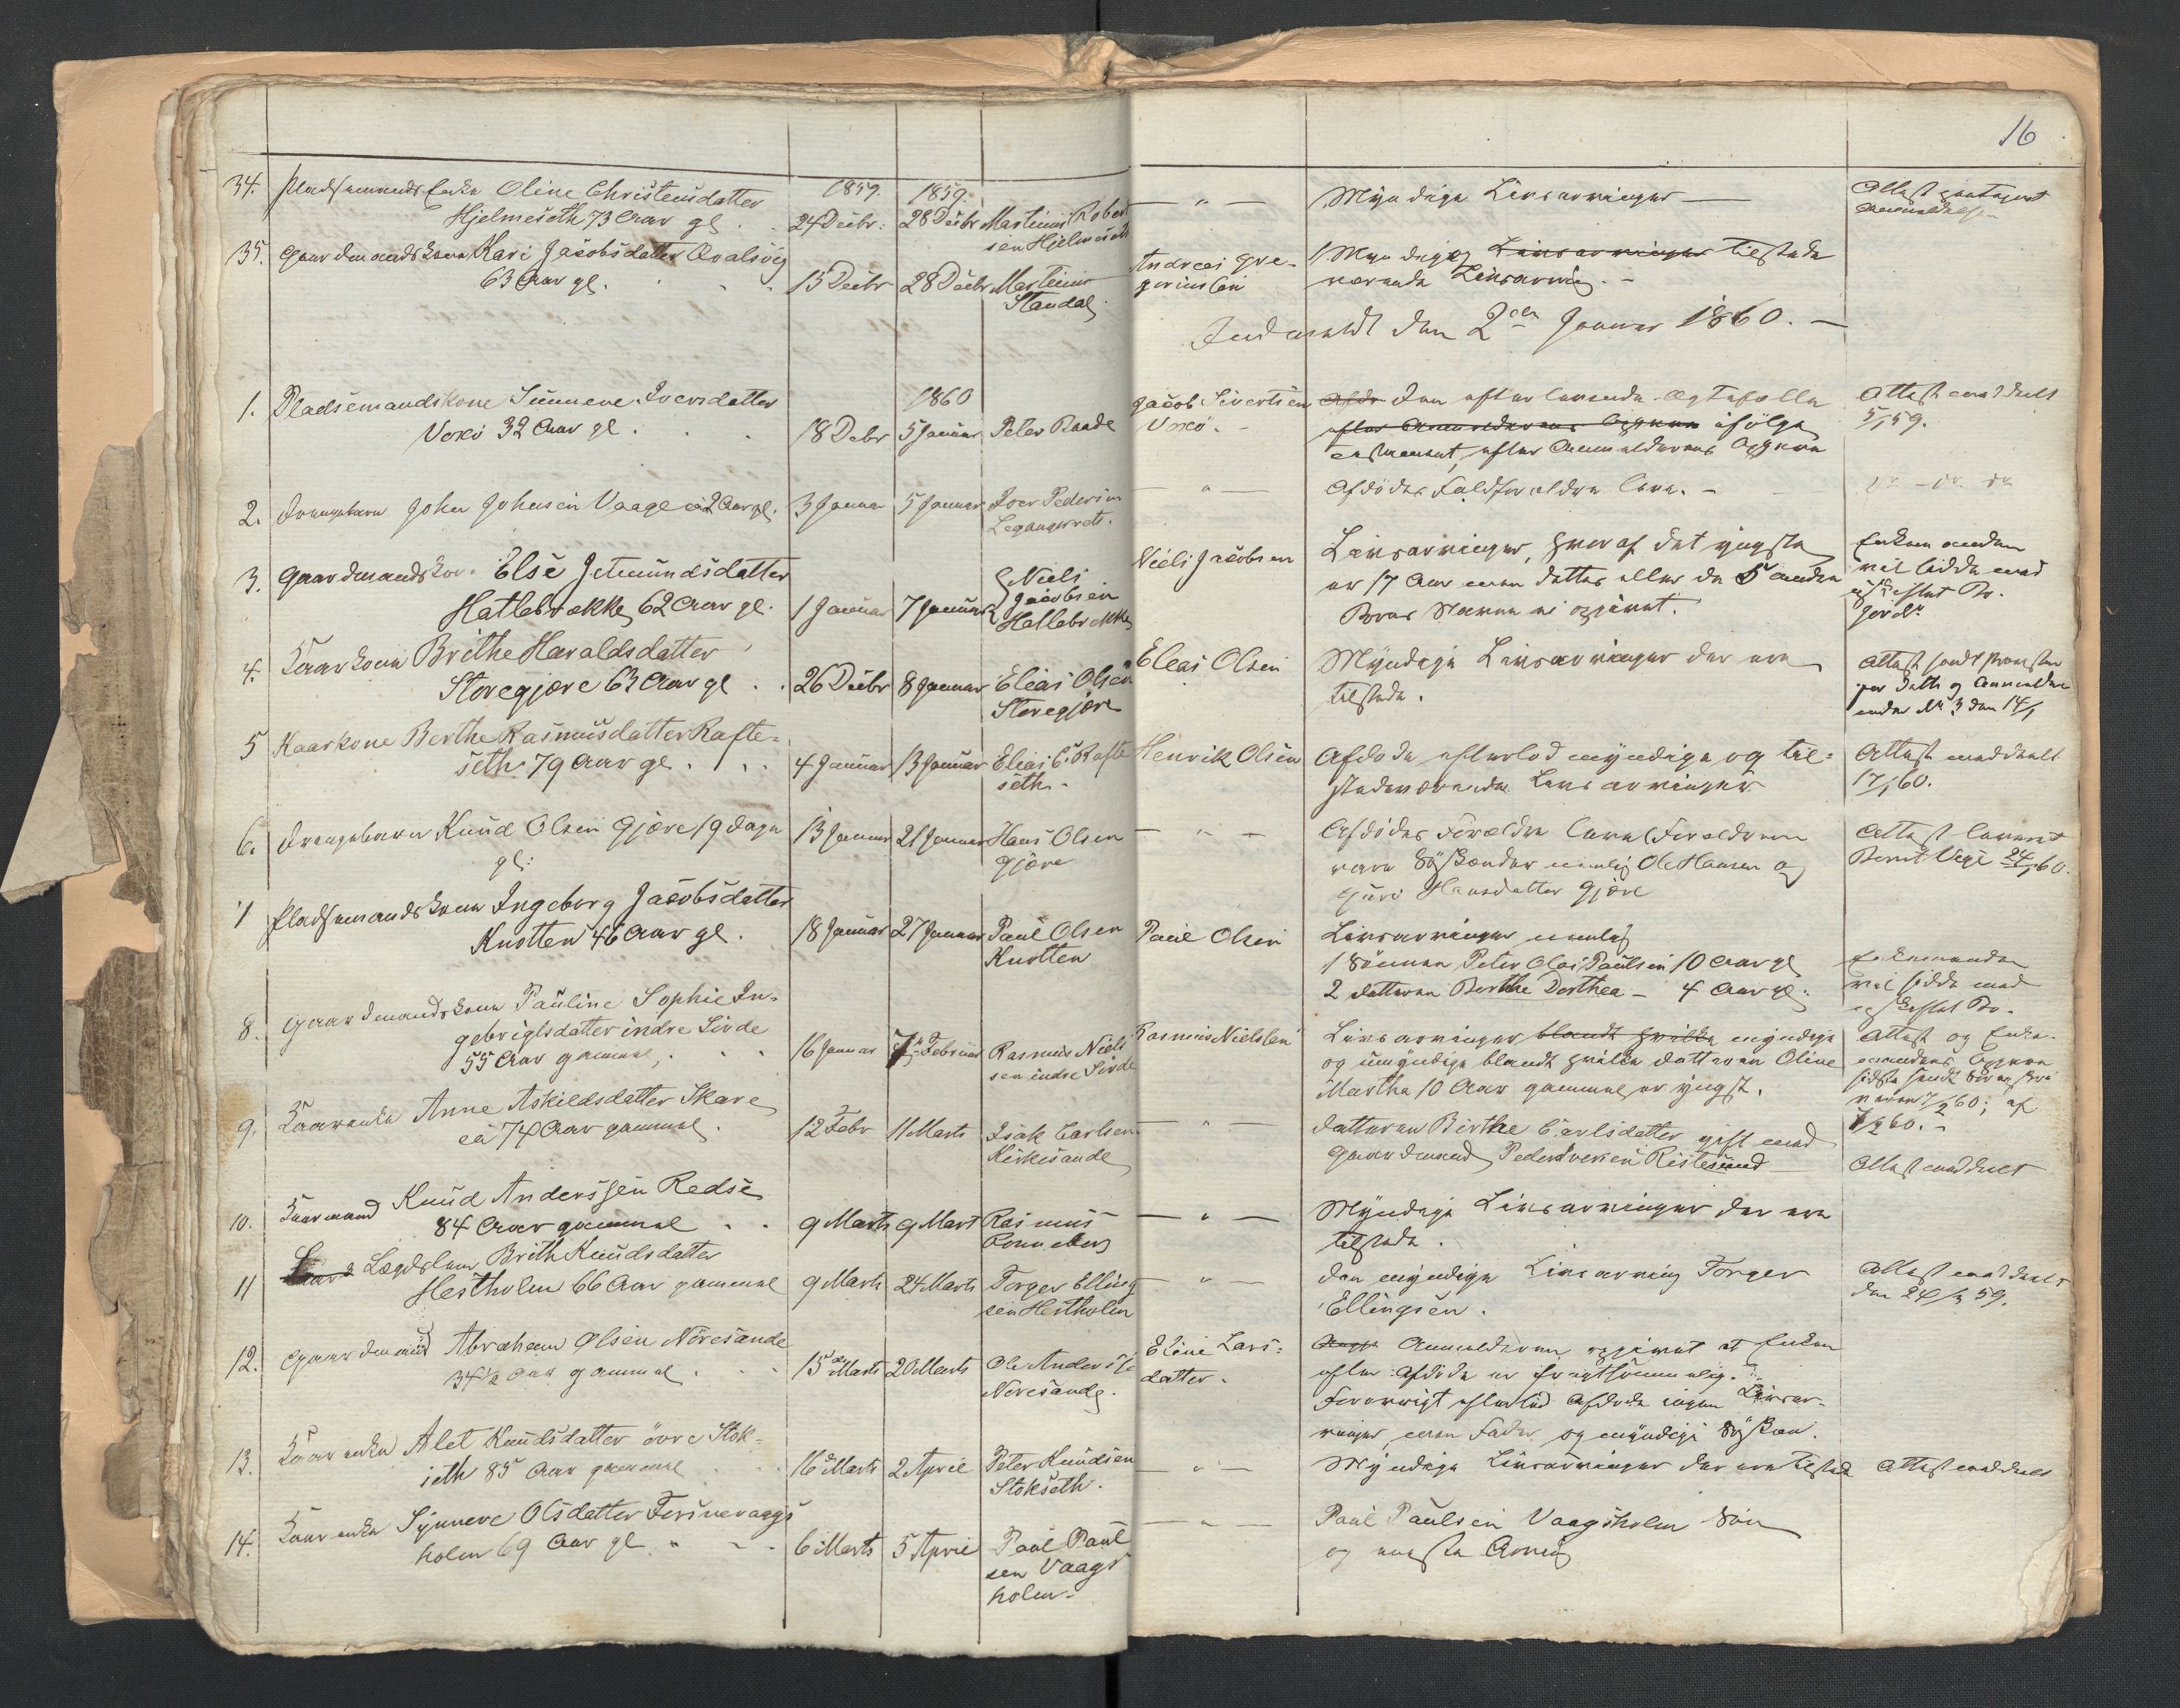 16
34. Pladsemands Enke Oline Christensdatter
Hjelmeseth 73 Aar gl. 1859. 24 Decbr: 1859. 28 Decbr Martinus Robert
sen Hjelmeseth
— " — Myndige Livsarvinger —
Attest
35. Gaardmandskone Kari Jacobsdatter Qvalsvig
63 Aar gl. 15 Decbr 28 Decbr Martinus
Standal
Andreas Gre-
goriussen
1 Myndig Livsarvinger tilstede
værende Livsarving. -
Indsendt den 2den Januar 1860. —
1. Pladsemandskone Sunneve Iversdatter 1860
Voxö 32 Aar gl. 18 Debr 5 Januar Peter Raade
Jacob Sivertsen
Voxö. -
Afdö den efterlevende Ægtefælle
efter Anmelderens Opgivn ifölge
testament, efter Anmelderens Opgivn
Attest meddeelt
5/1 59.
2. Drengebarn John Johnsen Vaage ca 2 Aar gl. 3 Januar 5 Januar Iver Pedersen
Leganger
— " — Afdödes Forældre leve. -
do - do do
3. Gaardmandskone Else Jetmundsdatter
Hatlebrække 62 Aar gl. 1 Januar 7 Januar Niels
Jacobsen
Hatlebrække
Niels Jacobsen
Livsarvinger, hvoraf det yngste
er 17 Aar men datter eller de 5 andre
Börns Navne ei opgivet.
Enkemanden
vil sidde med
uskiftet Bo.
4. Kaarkone Brithe Haraldsdatter
Storegjære 63 Aar gl. 26 Decbr 8 Januar Elias Olsen
Storegjære
Elias Olsen
Myndige Livsarvinger der ere
tilstede.
Attest sendt Præsten
under No 3 den 14/1
5 Kaarkone Berthe Rasmusdatter Rafte-
seth 79 Aar gl. 4 Januar 13 Januar Elias E. Rafte
seth. -
Henrik Olsen
Afdöde efterlod myndige og til-
stedeværende Livsarvinger
Attest meddeelt
17/1 60.
6. Drengebarn Knud Olsen Gjære 19 Dage
gl: 13 Januar 21 Januar Hans Olsen
Gjære
— " — Afdödes Forældre leve (Forældrene
vare Söskender nemlig Ole Hansen og
Guri Hansdatter Gjære
Attest leveret
Bernt Vege 24/1 60.
7 Pladsemandskone Ingeborg Jacobsdatter
Knotten 46 Aar gl. 18 Januar 27 Januar Paul Olsen
Knotten
Paul Olsen
Livsarvinger nemlig
1 Sönnen Peter Olai Paulsen 10 Aar gl
2 datteren Berthe Dorthea - 4 Aar gl.
Enkemanden
vil sidde med
uskiftet Bo.
8. Gaardmandskone Pauline Sophie In-
gebrigtsdatter indre Sivde
55 Aar gammel, 16 Januar 7de Februar Rasmus Niels
sen indre Sivde
Rasmus Nielssen
Livsarvinger blandt hvilke myndige
og umyndige blandt hvilke datteren Oline
Martha 10 Aar gammel er yngst.
Attest og Enke-
mandens Opgivn
7/2 60; af
7/2 60. -
9. Kaarenke Anne Askildsdatter Skare
ca 74 Aar gammel. 12 Febr 11 Marts Isak Carlsen
Kirkisande
— " — datteren Birthe Carlsdatter gift med
Gaardmand Peder Iversen Ristesund
Attest meddeelt
10. Kaarmand Knud Anderssen Redse
84 Aar gammel 9 Marts 9 Mart Rasmus
Ronneberg
— " — Myndige Livsarvinger der ere
tilstede.
11 Lægdslem Brith Knudsdatter
Hestholm 66 Aar gammel 9 Marts 24 Marts Torger Elling
sen Hestholm
— " — den myndige Livsarving Torger
Ellingsen.
Attest meddeelt
den 24/3 59.
12. Gaardmand Abraham Olsen Nöresande
34 1/2 Aar gammel 15de Marts 20 Marts Ole Anders
Nöresande.
Eline Lars-
datter.
Anmelderen opgivet at Enken
efter Afdöde er frugtsommelig.
Forövrigt efterlod Afdöde ingen Livsar-
vinger, men Fader og myndige Söskende.
13. Kaarenke Alet Knudsdatter övre Stok-
seth 85 Aar gammel 16de Marts 2 April Peter Knudsen
Stokseth.
— " — Myndige Livsarvinger der ere tilstede
Attest meddeelt
14. Kaarenke Synneve Olsdatter Vaags
holm 69 Aar gl 6 Marts 5 April Paul Paul
sen Vaags
holm -
— " — Paul Paulsen Vaagsholm Sön
og næste Arving